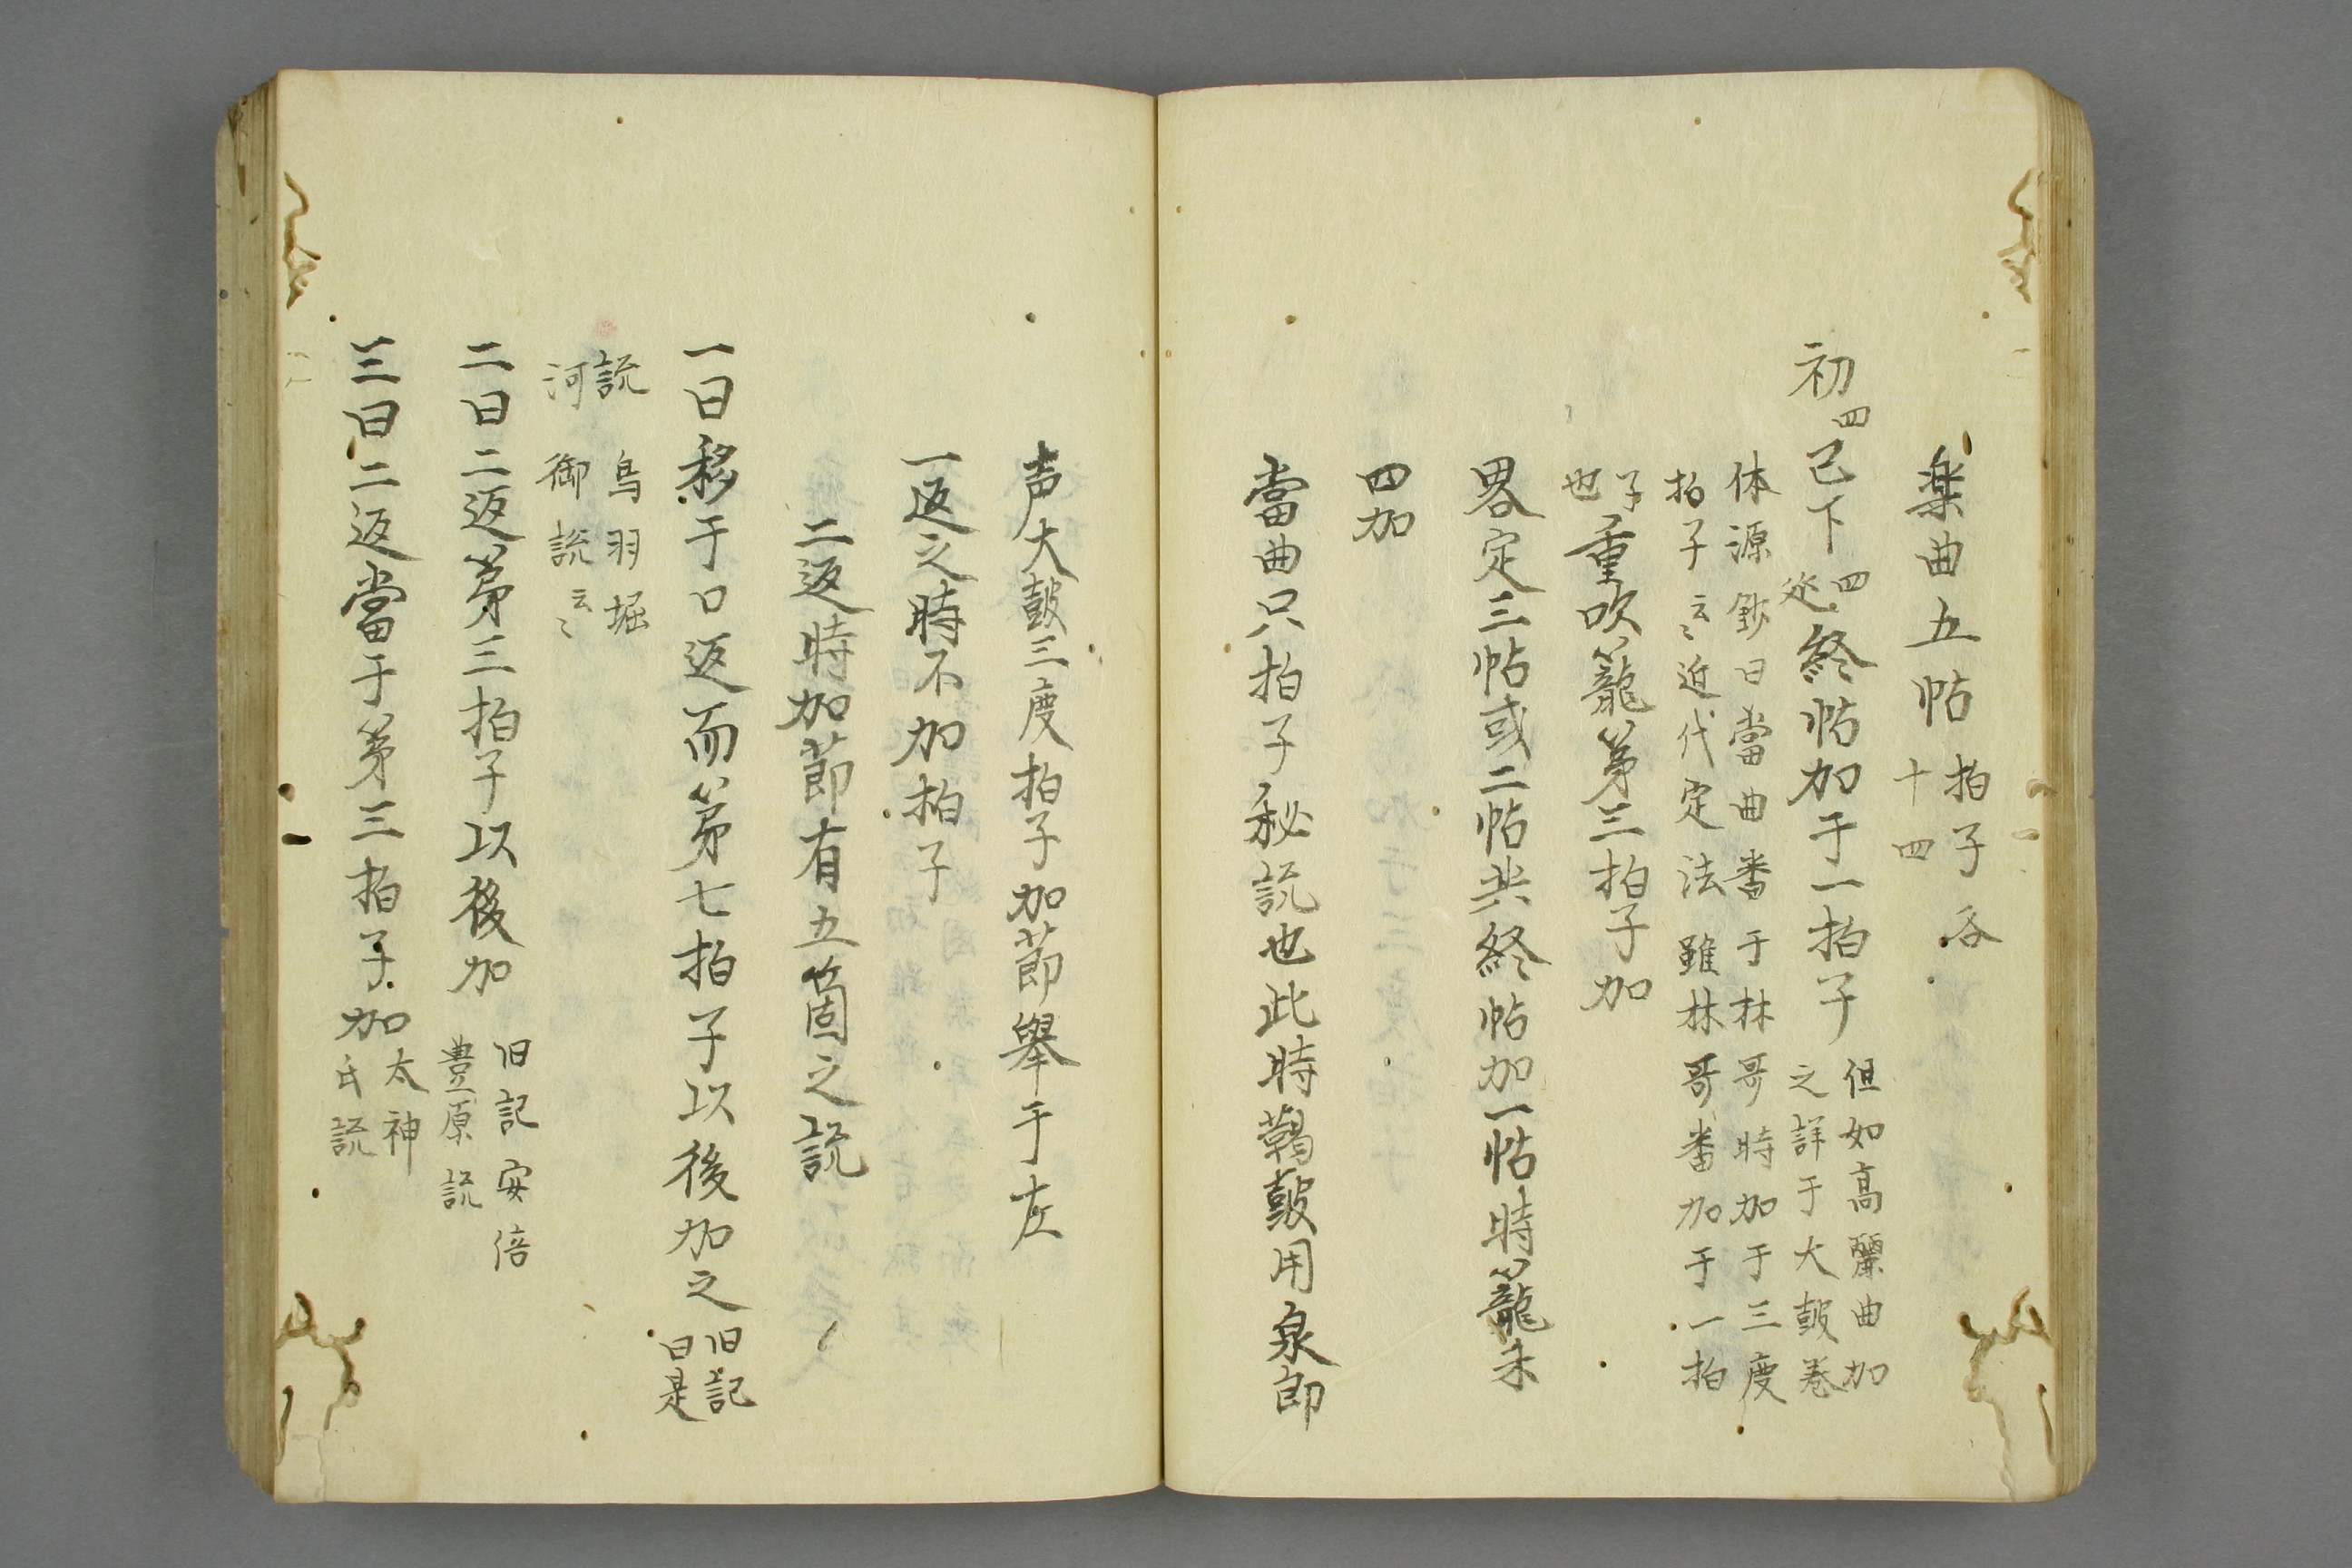 楽曲五帖拍子各
十四
初四己下四
終帖加于一拍子但如高麗曲加
之詳于大鼓巻
体源鈔曰當曲番于林哥時加于三度
拍子云〻近代定法雖林哥番加于一拍
子
也重吹籠第三拍子加
畧定三帖或二帖共終帖加一帖時籠未
四加
當曲只拍子秘説也此時鞨鼓用泉郎
声大鼓三度拍子加節擧于左
一返之時不加拍子
二返時加節有五箇之説
一曰移于口返而第七拍子以後加之旧記
曰是
説鳥羽堀
河御説云〻
二曰二返第三拍子以後加旧記安倍
豊原説
三曰二返當于第三拍子加太神
氏説